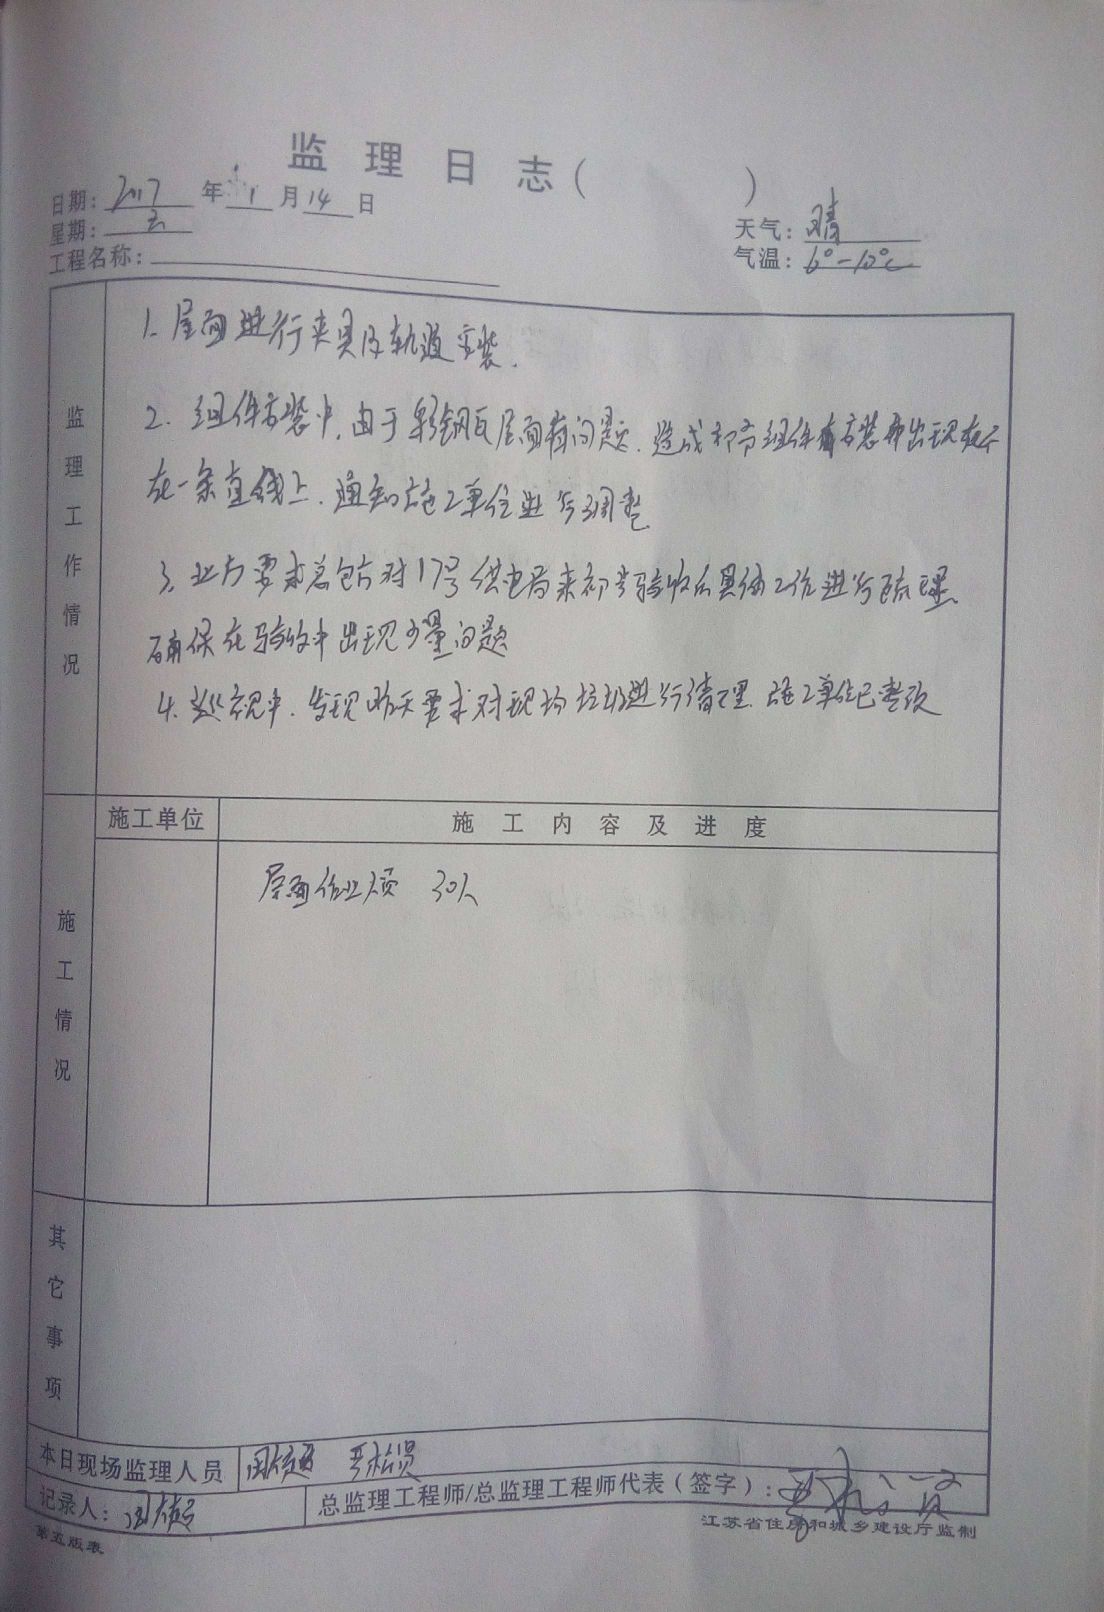 监理日志( )
日期: 2017 年 1 月 14 日
星期: 五
天气: 晴
工程名称:
气温: 6°-12°C
监理工作情况
1. 屋面进行夹具及轨道安装.
2. 组件安装中, 由于彩钢瓦屋面有问题, 造成部分组件安装出现在不
在一条直线上. 通知施工单位进行调整
3. 业方要求总包方对17号供电局来初步验收的具体工作进行梳理
确保在验收中出现少量问题
4. 巡视中. 发现昨天要求对现场垃圾进行清理. 施工单位已整改
施工单位
施工内容及进度
施工情况
屋面作业人员 30人
其它事项
本日现场监理人员
记录人:
总监理工程师/总监理工程师代表(签字):
第五版表
江苏省住房和城乡建设厅监制